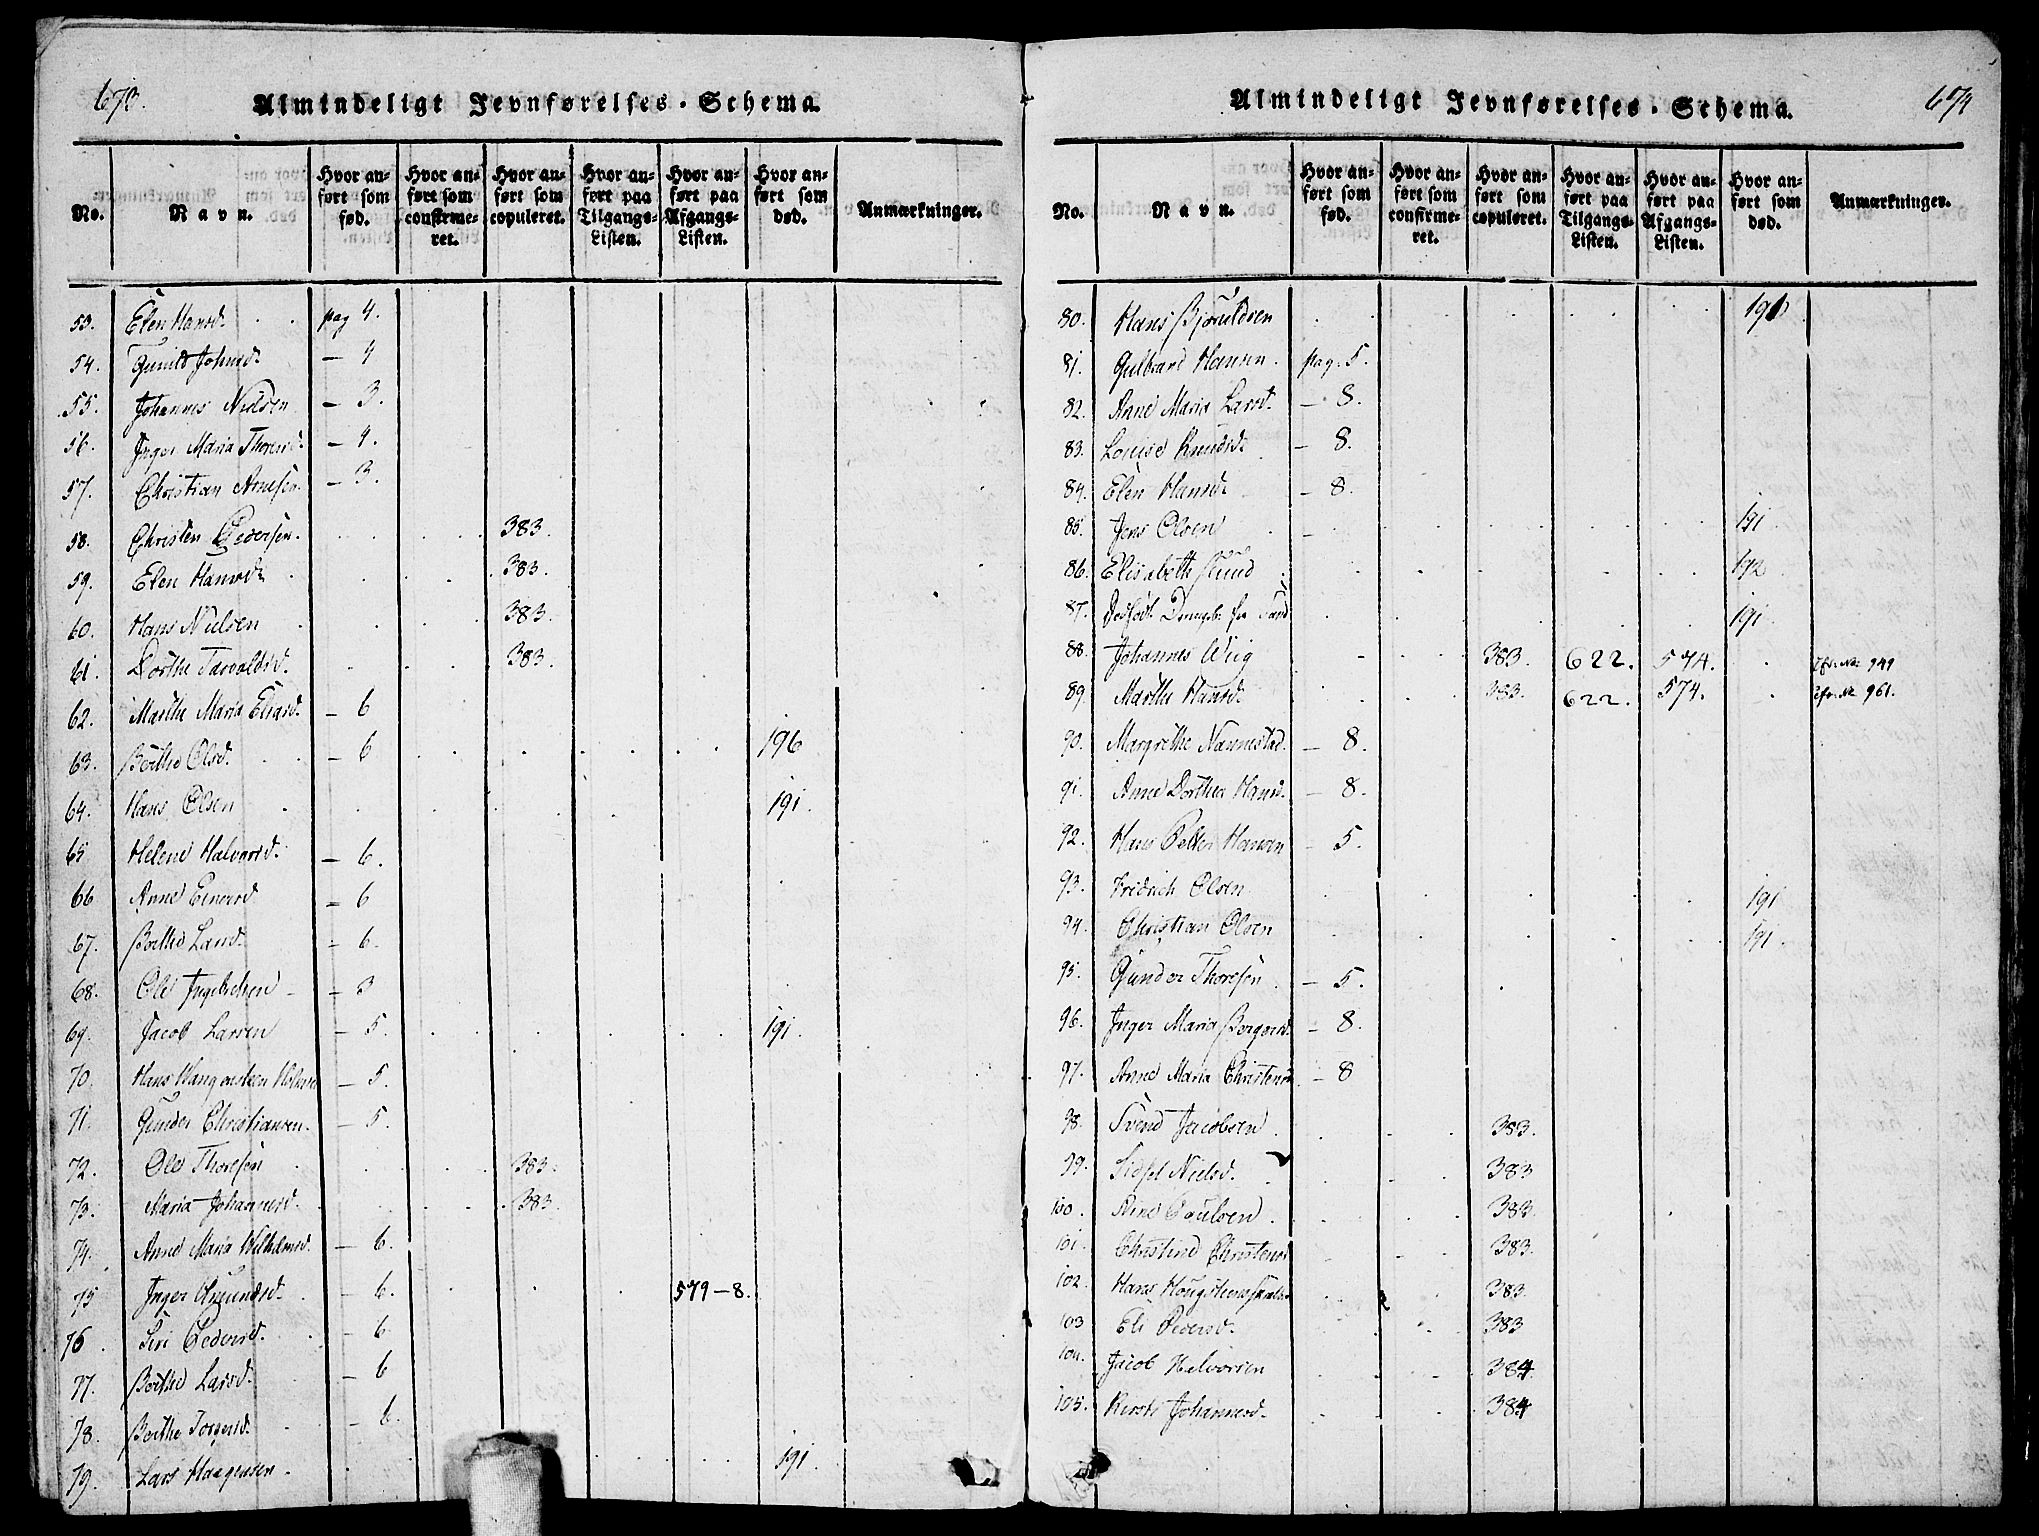 673.
Almindeligt Jevnførelses-Schema.
No. Navn. Hvor anført som fød. Hvor anført som confirmeret. Hvor anført som copuleret. Hvor anført paa Tilgangs-Listen. Hvor anført paa Afgangs-Listen. Hvor anført som død. Anmærkninger.
53. Elen Hansd. pag 4.
54. Gunild Johnsd. — 4
55. Johannes Nielsen — 3.
56. Inger Maria Thoresd. — 4.
57. Christian Arnesen — 3.
58. Christen Pedersen. 383.
59. Elen Hansd. 383.
60. Hans Nielsen 383.
61. Dorthe Tarvaldsd. 383.
62. Marthe Maria Eliasd. — 6
63. Berthe Olsd. — 6 196
64. Hans Olsen 191.
65 Helene Halvorsd. — 6.
66 Anne Einersd — 6
67. Berthe Larsd. — 6.
68. Ole Ingebretsen — 3
69. Jacob Larsen — 5. 191.
70. Hans — 5.
71. Gunder Christiansen. — 5.
72. Ole Thoresen 383.
73. Maria Johannesd. 383.
74. Anne Maria Wilhelmsd. — 6.
75 Inger Amundsd. — 6. 579—8.
76. Siri Pedersd. — 6.
77. Berthe Larsd. — 6
78. Berthe Torgersd. — 6.
79. Lars Haagensen. 191.
674
Almindeligt Jevnførelses-Schema.
No. Navn. Hvor anført som fød. Hvor anført som confirmeret. Hvor anført som copuleret. Hvor anført paa Tilgangs-Listen. Hvor anført paa Afgangs-Listen. Hvor anført som død. Anmærkninger.
80. Hans Bjøruldsen 191
81. Gulbrand Hansen. pag. 5.
82. Anne Maria Larsd. — 8.
83. Louise Knudsd. — 8.
84. Elen Hansd — 8.
85. Jens Olsen 191
86. Elisabeth 192
87. Dødfødt fra 191.
88. Johannes Wiig 383. 622. 574. Cfr. No. 949
89. Marthe Hansd. 383. 622. 574. Cfr. No. 961.
90. Margrethe Nannestad. — 8.
91. Anne Dorthea Hansd. — 8.
92. Hans Petter Hansen — 5.
93. Fridrich Olsen 191
94. Christian Olsen 191.
95. Gunder Thoresen. — 5.
96. Inger Maria Borgersd. — 8.
97. Anne Maria Christensd. — 8
98. Svend Jacobsen. 383.
99. Sidsel Nielsd. 383
100. Arne Paulsen. 383.
101. Christine Christensd 383.
102. Hans 383.
103 Eli Pedersd. 383
104. Jacob Halvorsen 384
105. Kirsti Johannesd. 384